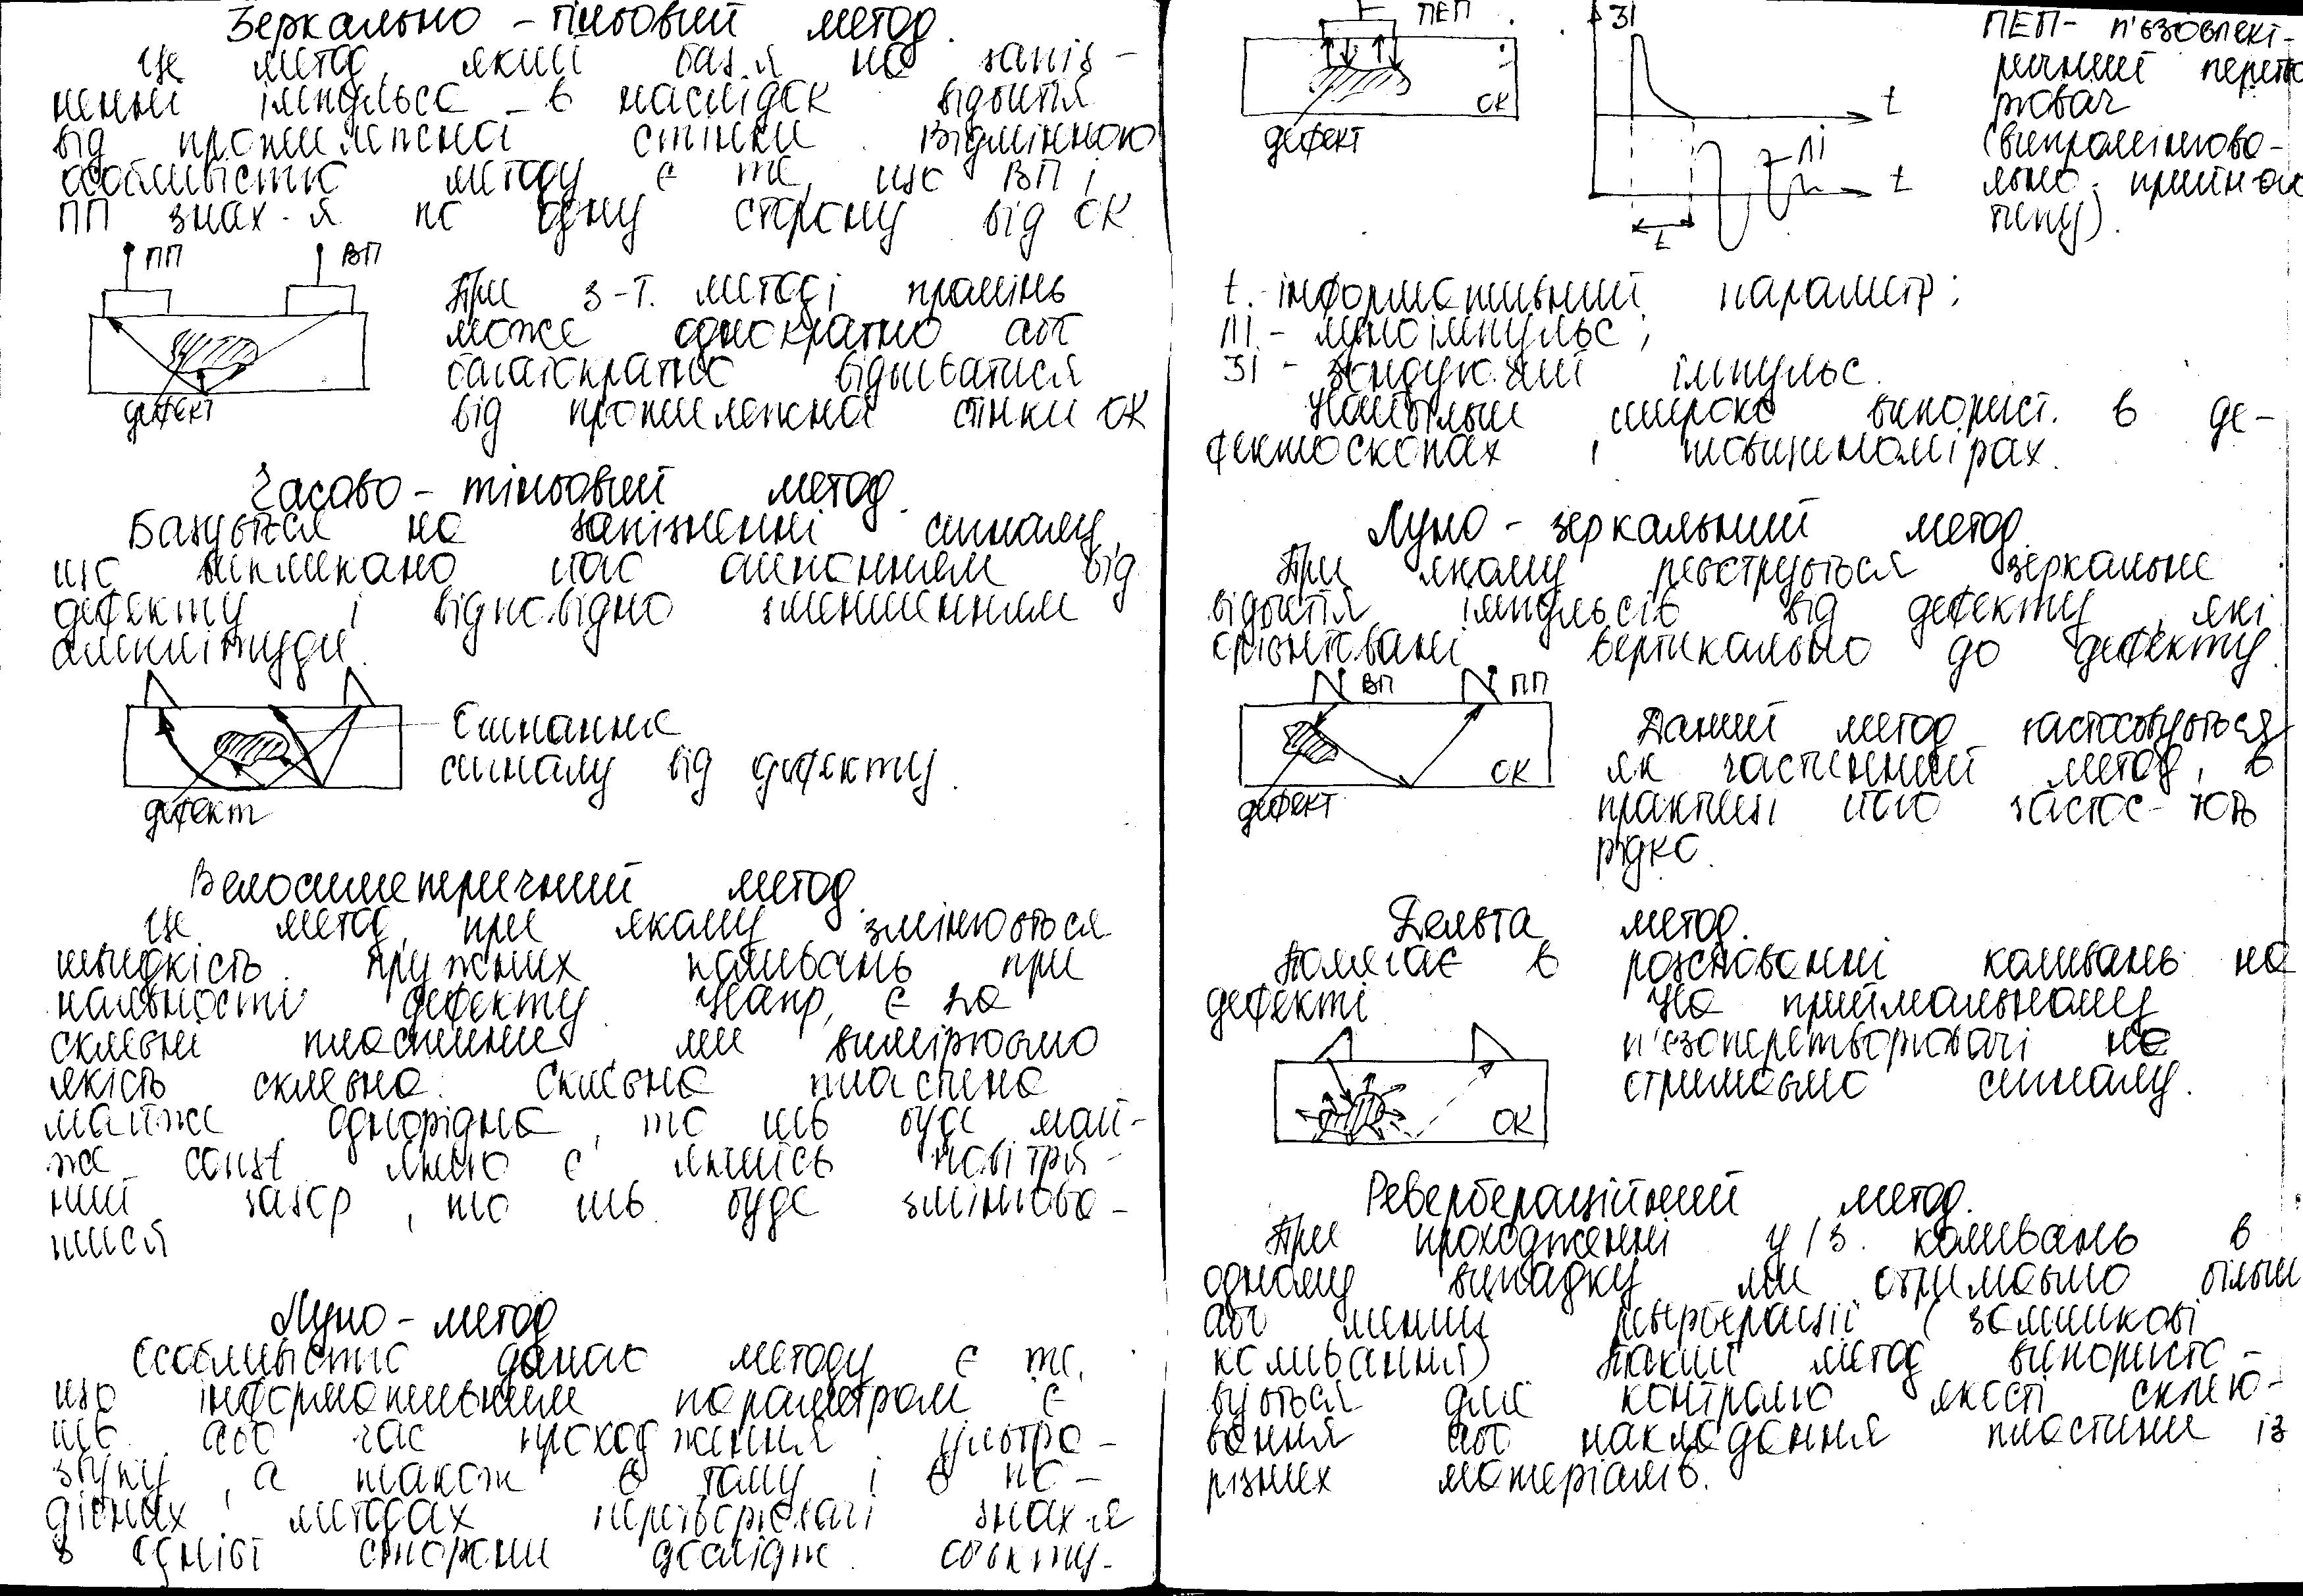 Зеркально - тіньовий метод.
Це метод, який баз-я на запіз-
ненні імпульса в наслідок відбиття
від протилежної стінки. Відмінною
особливістю методу є те, що ВП і
ПП знах-я по одну сторону від ОК
ПП ВП
При з-т. методі промінь
може однократно або
багатократно відбиватися
від протилежної стінки ОК
дефект
Часово - тіньовий метод.
Базується на запізненні сигналу,
що викликано його огинанням від
дефекту і відповідно зменшенням
амплітуди.
Огинання
сигналу від дефекту.
дефект
Велосиметричний метод.
Це метод, при якому змінюється
швидкість пружних коливань при
наявності дефекту. Напр, є 2а
склеєні пластини, ми вимірюємо
якість склеєна. Склеєна пластина
майже однорідна, то шв буде май-
же const. Якщо є якийсь повітря-
ний зазор, то шв. буде змінюва-
тися
Луно - метод
Особливістю даного методу є те,
що інформативним параметром є
шв. або час проходження ультра-
звуку, а також в тому і в по-
дібних методах перетворювачі знах-я
з однієї сторони дослідж. об'єкту.
ПЕП
ОК
дефект
ЗІ
t
ЛІ
t
t
ПЕП - п'єзоелект-
ричний перетво
рювач
(випромінюва-
льно - приймал
типу).
t - інформативний параметр;
ЛІ - луноімпульс;
ЗІ - зондуючий імпульс.
Найбільш широко використ. в де-
фектоскопах і товщиномірах.
Луно - зеркальний метод.
При якому реєструється зеркальне
відбиття імпульсів від дефекту, які
орієнтовані вертикально до дефекту.
ВП ПП
ОК
дефект
Даний метод застосовується
як частинний метод, в
практиці його застос-ють
рідко.
Дельта метод.
Полягає в розсіюванні коливань на
дефекті. На приймальному
п'єзоперетворювачі не
отримаємо сигналу.
ОК
Ревербераційний метод.
При проходженні у/з. коливань в
одному випадку ми отримаємо більш
або менш реверберації (залишкові
коливання) Такий метод використо-
вується для контролю якості склею-
вання або накладання пластини із
різних матеріалів.